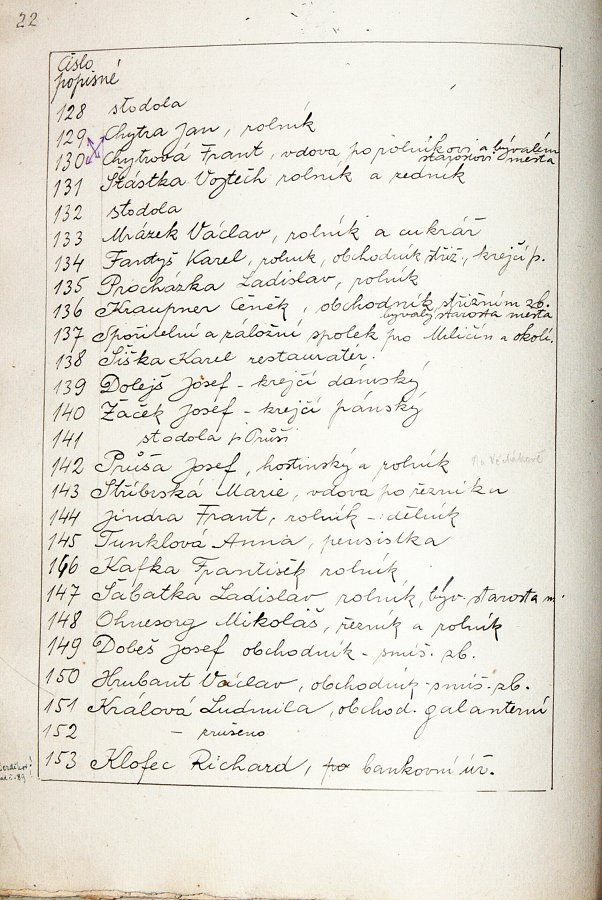 22
Číslo
popisné
128 stodola
129 Chytra Jan, rolník
130 Chytrová Frant, vdova po rolníkovi a bývalém
starostovi města
131 Šťástka Vojtěch rolník a
132 stodola
133 Mrázek Václav, rolník a cukrář
134 Fantyš Karel, rolník, obchodník střiž., krejčí p.
135 Procházka Ladislav, rolník
136 Kraupner Čeněk, obchodník střižním zb.
bývalý starosta města
137 Spořitelní a záložní spolek pro Miličín a okolí.
138 Šiška Karel restauratér.
139 Dolejš Josef - krejčí dámský
140 Žáček Josef - krejčí pánský
141 stodola p Průši
142 Průša Josef, hostinský a rolník
143 Stříbrská Marie, vdova po řezníku
144 Jindra Frant, rolník - dělník
145 Tunklová Anna, pensistka
146 Kafka František rolník
147 Šabatka Ladislav rolník, býv. starosta m.
148 Ohnesorg Mikoláš, řezník a rolník
149 Dobeš Josef obchodník - smíš. zb.
150 Hrubant Václav, obchodník - smíš. zb.
151 Králová Ludmila, obchod. galanterní
152 - zrušeno
153 Klofec Richard, po bankovní úř.